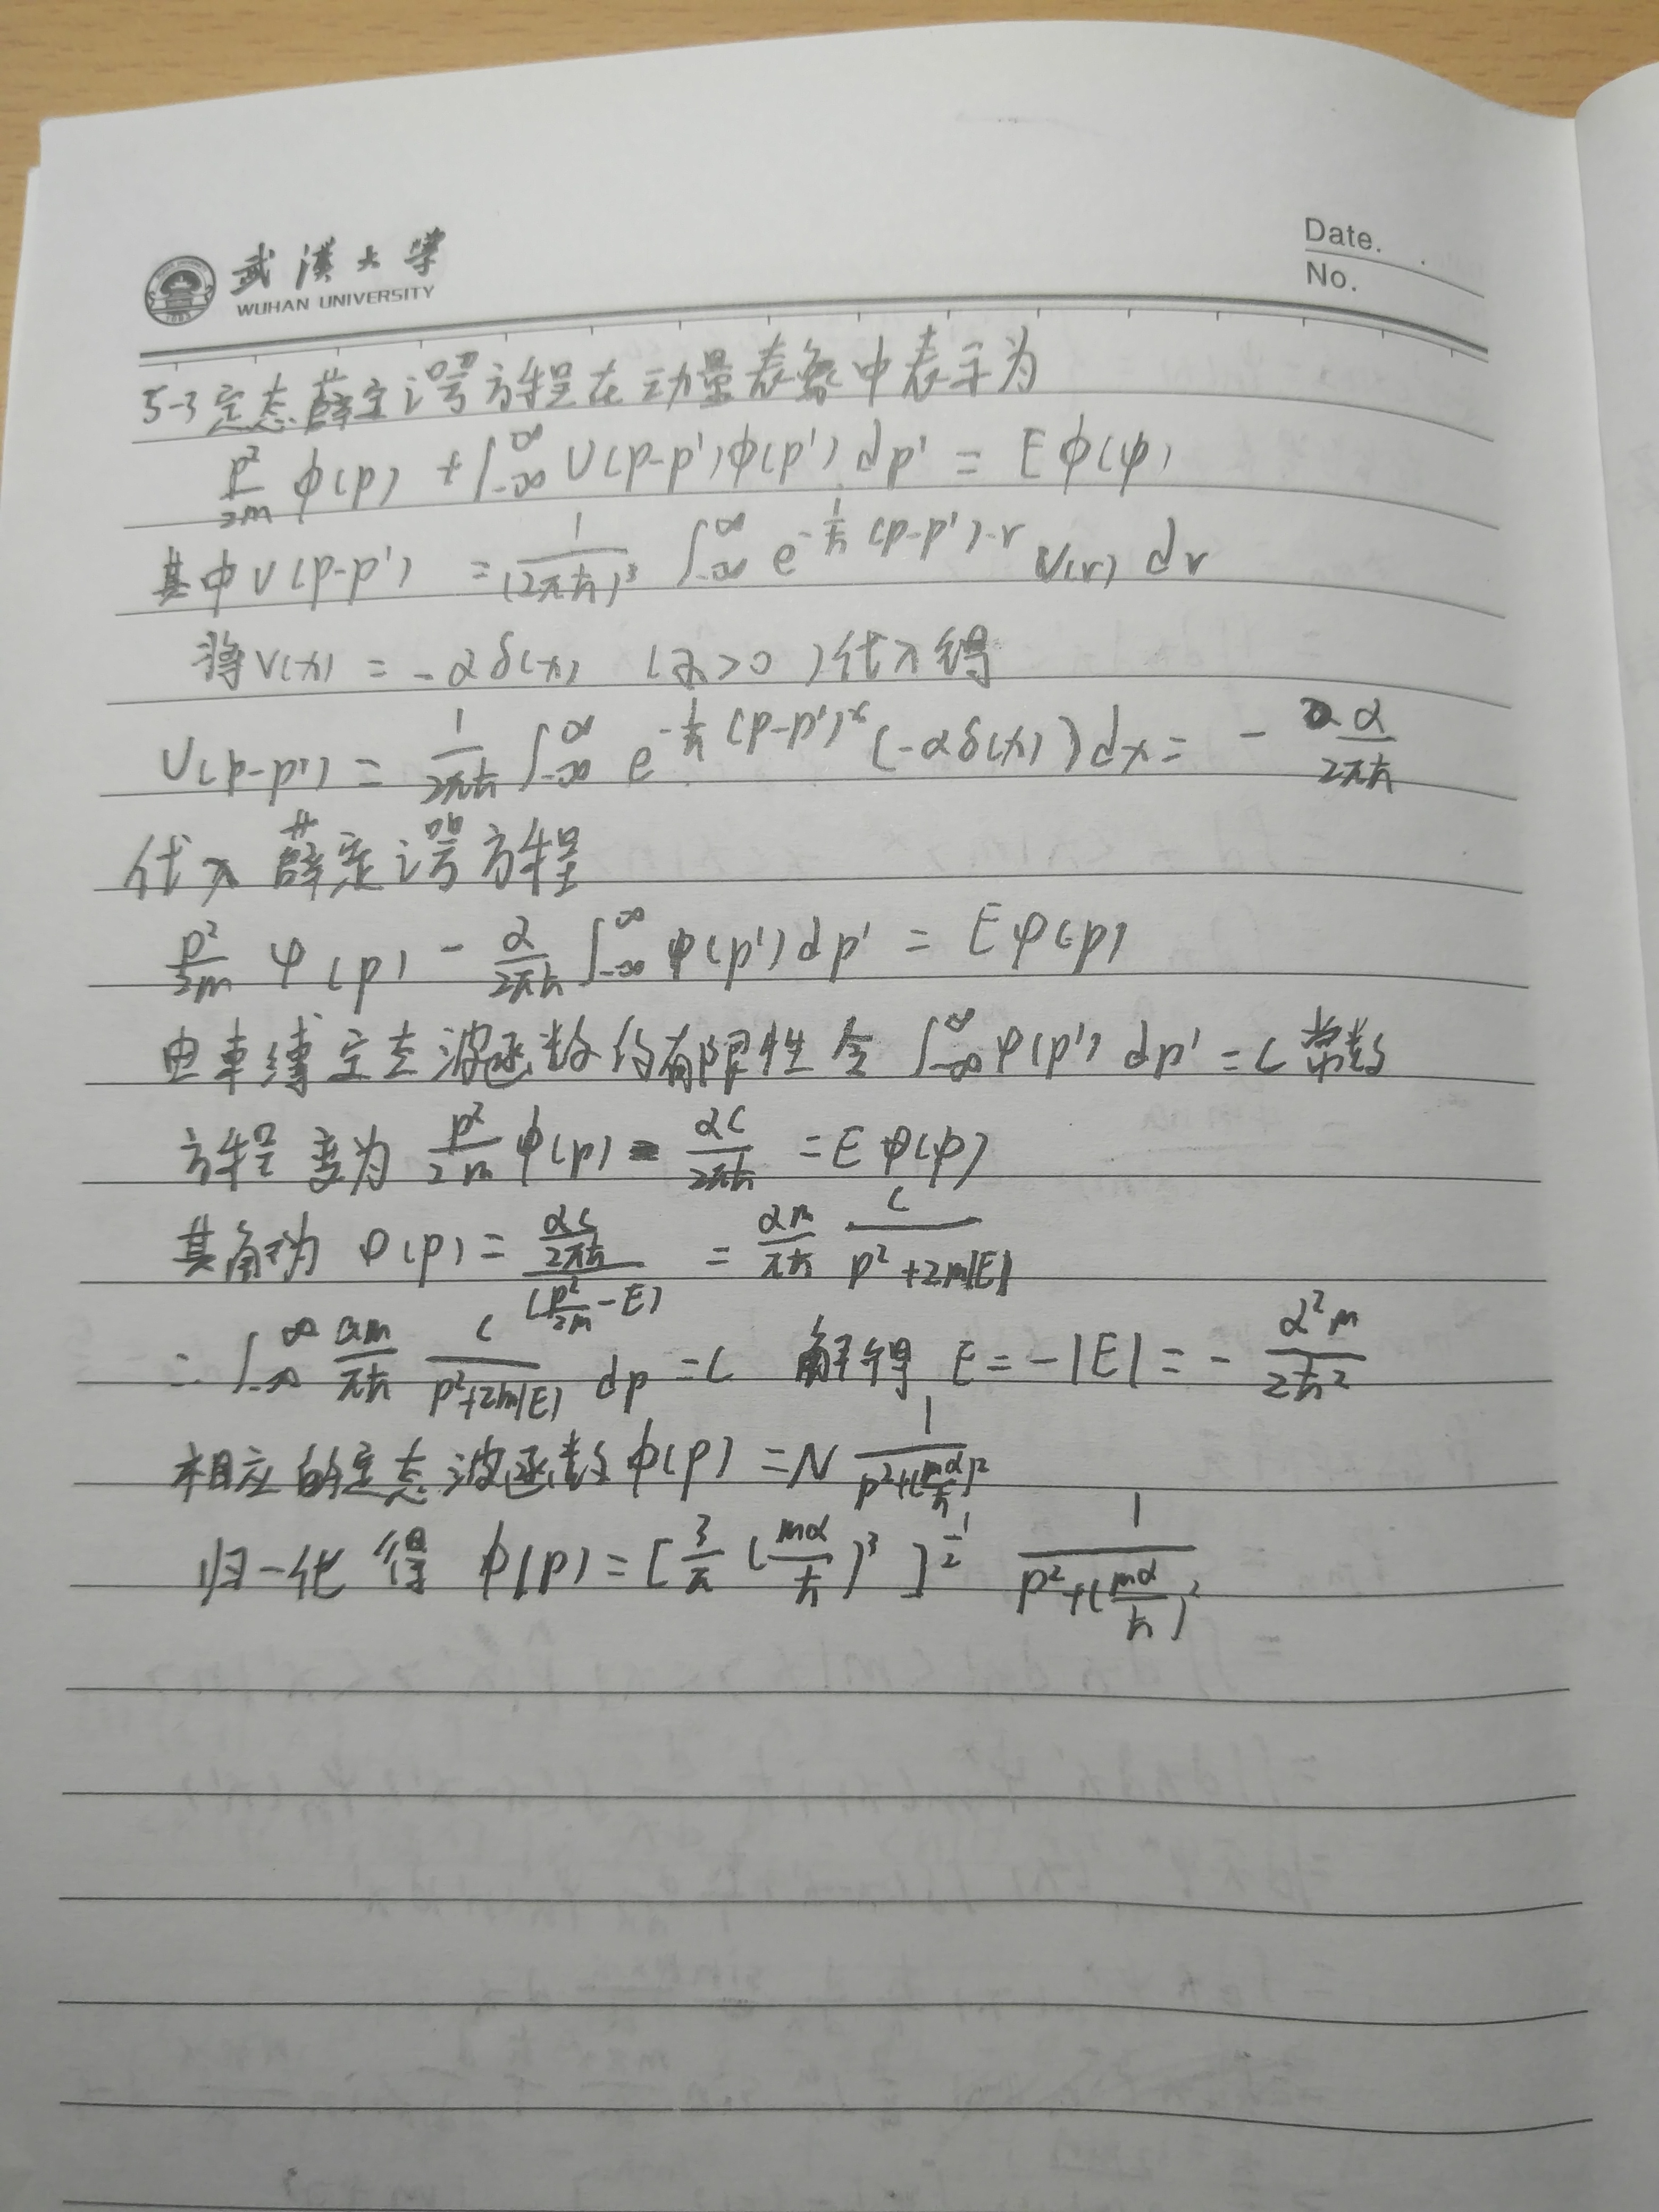 武漢大學
WUHAN UNIVERSITY
Date.
No.
5-3定态薛定谔方程在动量表象中表示为
p²/2m φ(p) + ∫_{-∞}^{∞} U(p-p')φ(p') dp' = Eφ(φ)
其中U(p-p') = 1/(2πħ)³ ∫_{-∞}^{∞} e^{-i/ħ (p-p')·r} V(r) dr
将V(x) = -αδ(x) (α>0)代入得
U(p-p') = 1/2πħ ∫_{-∞}^{∞} e^{-i/ħ (p-p')x} (-αδ(x)) dx = - α/2πħ
代入薛定谔方程
p²/2m φ(p) - α/2πħ ∫_{-∞}^{∞} φ(p') dp' = Eφ(p)
由束缚定态波函数的有限性令 ∫_{-∞}^{∞} φ(p') dp' = C 常数
方程变为 p²/2m φ(p) - αC/2πħ = Eφ(p)
其解为 φ(p) = (αC/2πħ)/(p²/2m - E) = αm/πħ C/(p²+2m|E|)
∴ ∫_{-∞}^{∞} αm/πħ C/(p²+2m|E|) dp = C 解得 E = -|E| = - α²m/2ħ²
相应的定态波函数 φ(p) = N 1/(p²+(mα/ħ)²)
归一化得 φ(p) = [3/π (mα/ħ)³]^{1/2} 1/(p²+(mα/ħ)²)